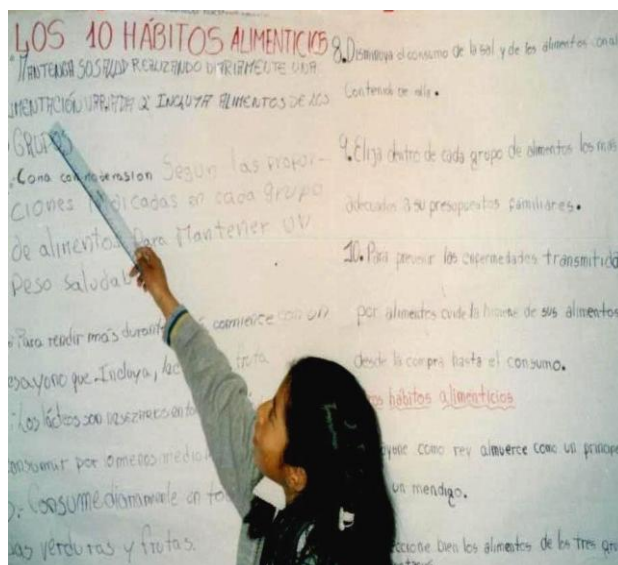 LOS 10 HÁBITOS ALIMENTICIOS
MANTENGA SO SALUD REALIZANDO DIARIAMENTE UNA
IMENTACIÓN VARIADA INCLUYA ALIMENTOS DE LOS
GRUPOS
Coma con moderasion Segun las propor-
ciones indicadas en cada grupo
de alimentos Para Mantener UN
Peso saludab
Para rendir mas durante comience con un
esayono que Incluya, lac fruta
Los lácteos son
onsumir por omenos medio
Consume diariamente en to
as verduras y frutas.
8. Disminuya el consumo de la sal y de los alimentos con al
Contenido de ella.
9. Elija dentro de cada grupo de alimentos los mas
adecuados a su presupuestos familiares.
10. Para prevenir las enfermedades transmitida
por alimentos cuide la de sus alimentos
desde la compra hasta el consumo.
os hábitos alimenticios
ayune como rey almuerce como un principe
un mendigo.
eccione bien los alimentos de los tres gru